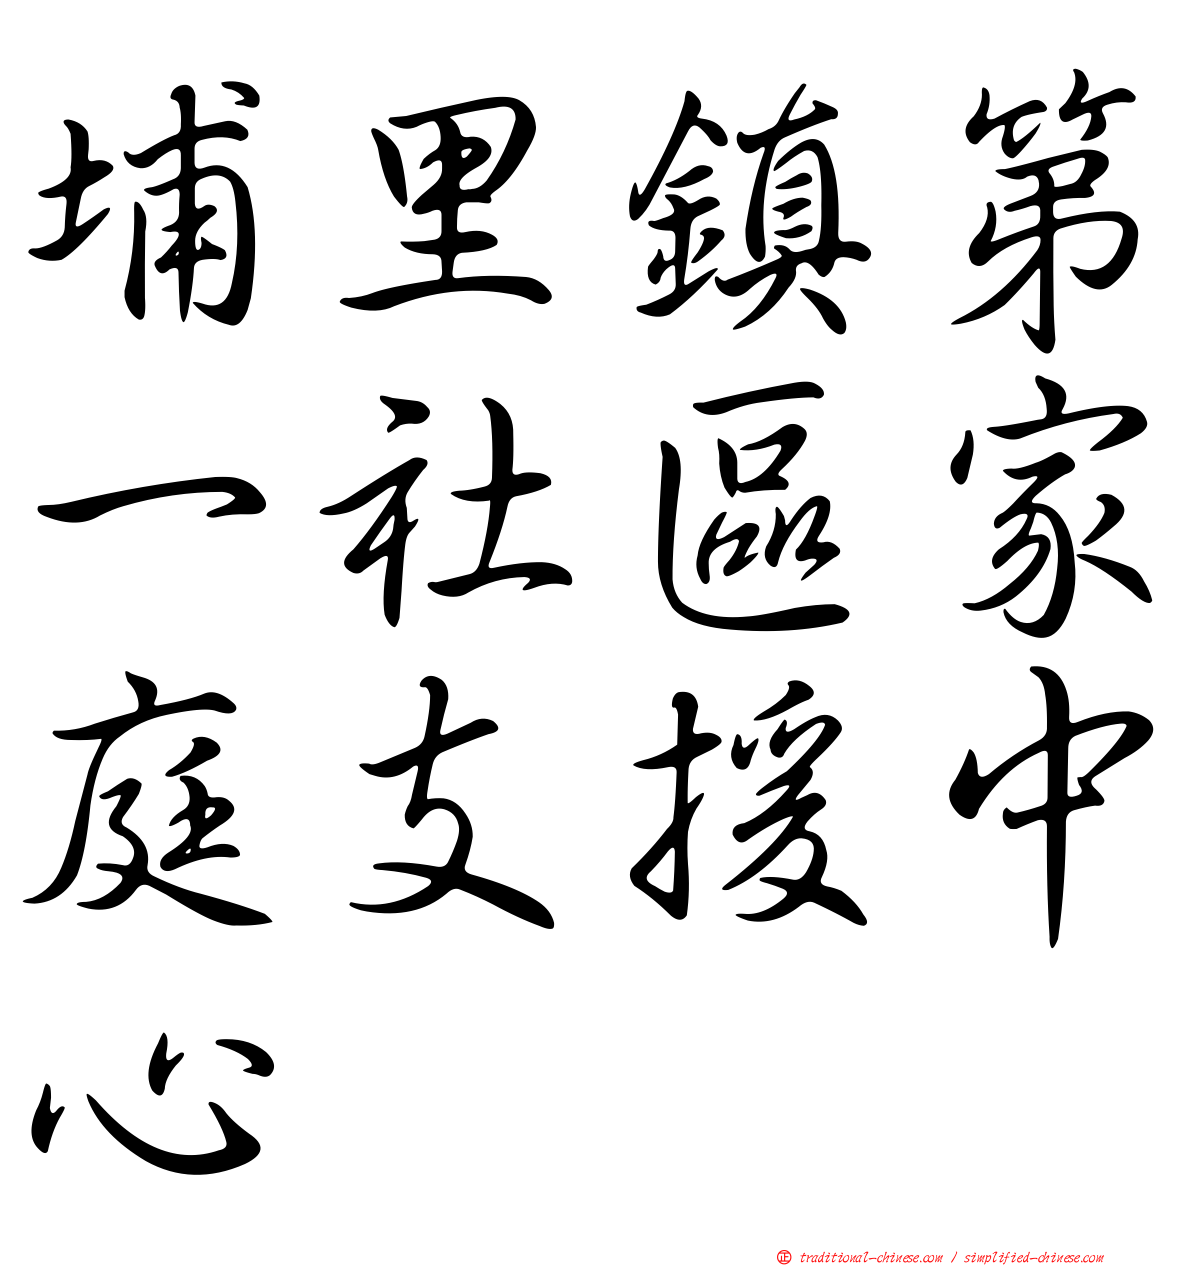 埔里鎮第
一社區家
庭支援中
心
正 traditional-chinese.com / simplified-chinese.com